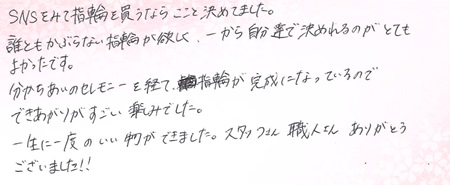 SNSをみて指輪を買うならここと決めてました。
誰ともかぶらない指輪が欲しく、一から自分達で決めれるのがとても
よかったです。
分かちあいのセレモニーを経て、指輪が完成になっているので
できあがりがすごい楽しみでした。
一生に一度のいい物ができました。スタッフさん 職人さん ありがとう
ございました!!